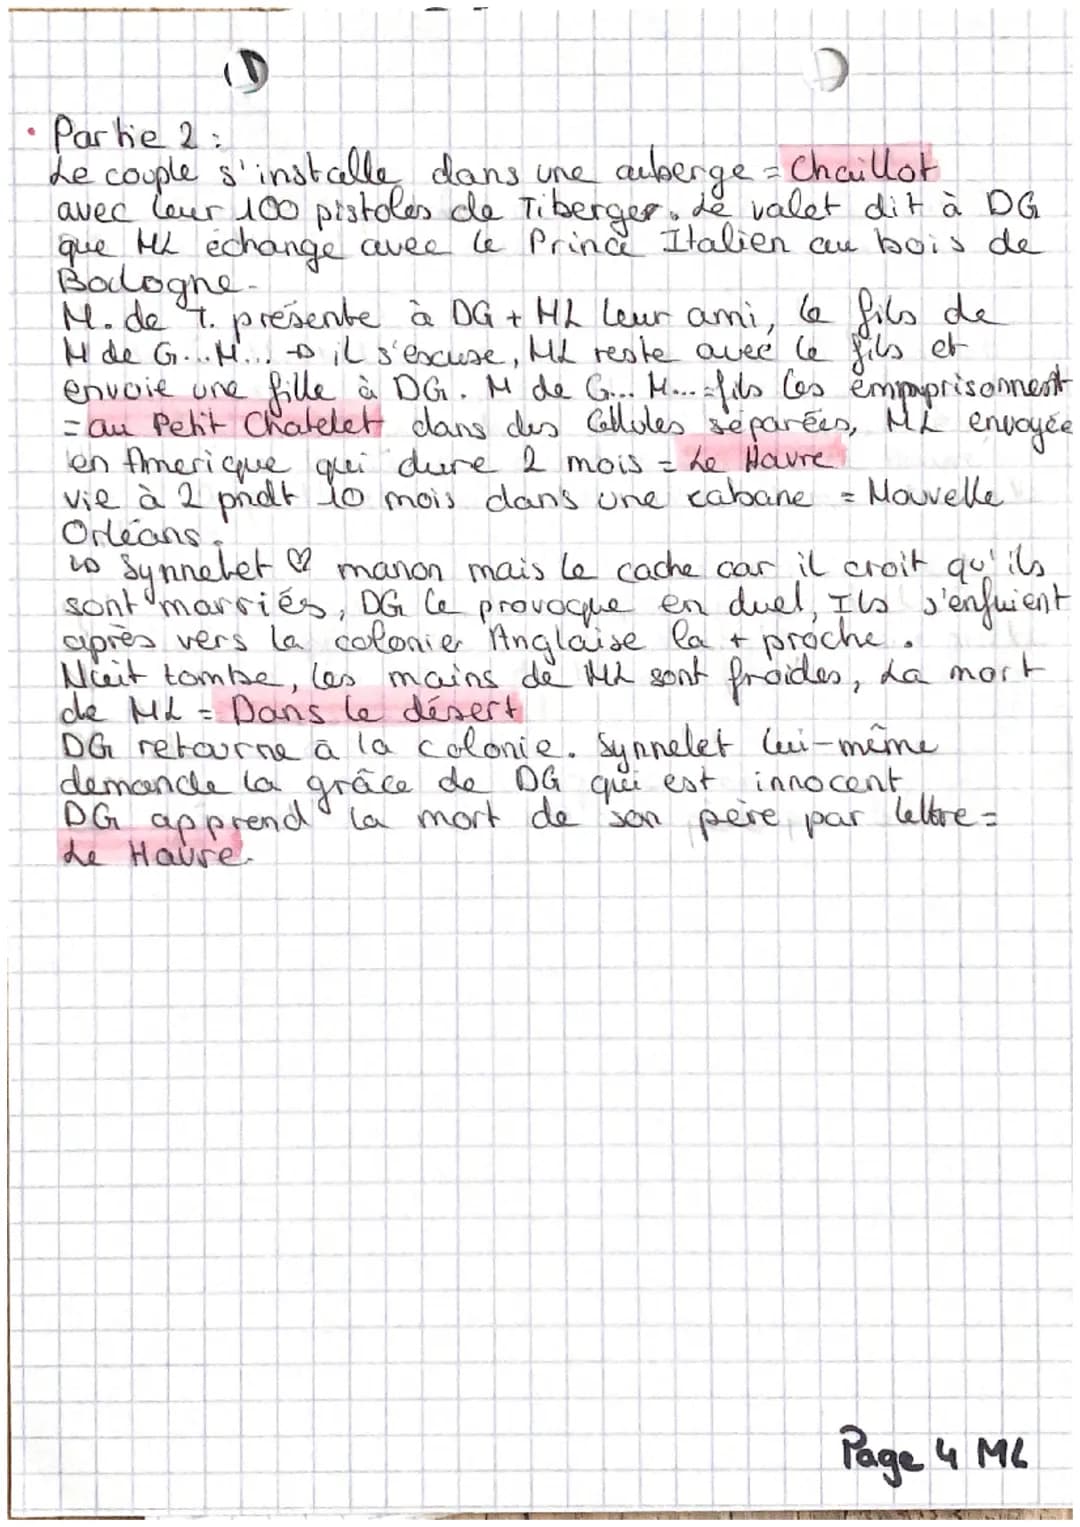 • Partie 2 :
Le couple s'installe dans une auberge = Chaillot
avec leur 100 pistoles de Tiberger. Le valet dit à DG
que ML échange avec le Prince Italien au bois de
Boulogne.
M. de T. présente à DG + ML leur ami, le fils de
M de G...M... → il s'excuse, ML reste avec le fils et
envoie une fille à DG. M de G... M... = fils les empprisonnent
= au Petit Chatelet dans des Cellules séparées, ML envoyée
en Amerique qui dure 2 mois = Le Havre
vie à 2 pndt 10 mois dans une cabane = Nouvelle
Orléans.
↳ Synnelet ♡ manon mais le cache car il croit qu'ils
sont marriés, DG le provoque en duel, Ils s'enfuient
après vers la colonier Anglaise la + proche.
Nuit tombe, les mains de ML sont froides, La mort
de ML = Dans le désert
DG retourne à la colonie. Synnelet lui-même
demande la grâce de DG qui est innocent
DG apprend la mort de son père par lettre =
Le Havre.
Page 4 ML